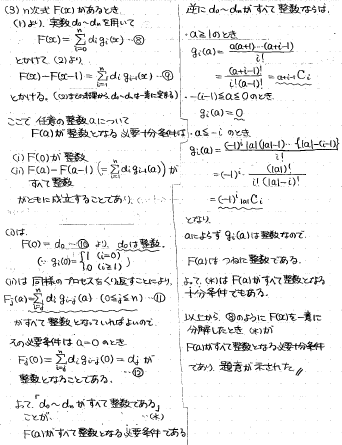 (3) n次式 F(x) があるとき
(1) より、実数 d₀~dₙ を用いて
F(x) = Σ_{i=0}^{n} dᵢ gᵢ(x) …⑧
とかけて (2)より、
F(x)-F(x-1) = Σ_{i=1}^{n} dᵢ gᵢ₋₁(x) …⑨
とかける。
ここで 任意の整数 a について
F(a) が 整数となる 必要十分条件は
(i) F(0) が 整数
(ii) F(a) - F(a-1) (= Σ_{i=1}^{n} dᵢ gᵢ₋₁(a)) が
すべて 整数
がともに成立することであり、
(i)は、
F(0) = d₀ …⑩ より、d₀は整数。
(∵ gᵢ(0) = { 1 (i=0)
0 (i≧1) )
(ii)は 同様のプロセスをくり返すことにより、
Fⱼ(a) = Σ_{i=j}^{n} dᵢ gᵢ₋ⱼ(a) (0≦j≦n) …⑪
がすべて 整数となっていればよいので、
その必要条件は a=0 のとき
Fⱼ(0) = Σ_{i=j}^{n} dᵢ gᵢ₋ⱼ(0) = dⱼ が
…⑫
整数となることである。
よって、「d₀~dₙ がすべて 整数である」
ことが、 …(*)
F(a) がすべて 整数となる 必要条件である
逆に d₀~dₙ がすべて 整数ならば、
・a≧1 のとき
gᵢ(a) = a(a+1)…(a+i-1) / i!
= (a+i-1)! / i!(a-1)! = ₐ₊ᵢ₋₁Cᵢ
・-(i-1)≦a≦0 のとき
gᵢ(a) = 0
・a≦-i のとき
gᵢ(a) = (-1)ⁱ|a|(|a|-1)…{|a|-(i-1)} / i!
= (-1)ⁱ・ (|a|)! / i!(|a|-i)!
= (-1)ⁱ |a|Cᵢ
となり、
aによらず gᵢ(a) は整数なので、
F(a) は つねに整数である。
よって、(*)は F(a) がすべて整数となる
十分条件でもある。
以上から、⑧のように F(x) を一意に
分解したとき (*)が
F(a)がすべて整数となる必要十分条件
であり、題意が示された//